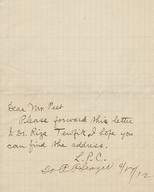 Dear Mr. Peet
Please forward this letter
to Dr. Riza Tewfik, I hope you
can find the address.
L. P. C.
4/17/12